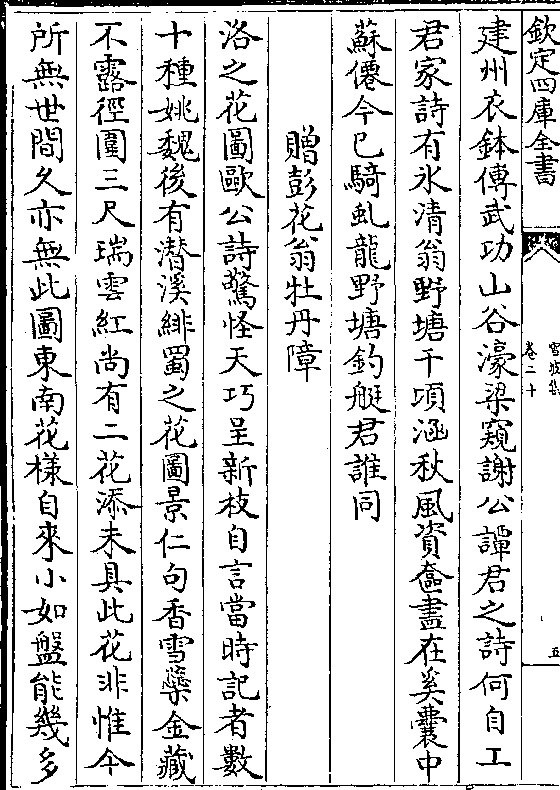 欽定四庫全書
卷二十
五
建州衣鉢傳武功山谷濠梁窺謝公譚君之詩何自工
君家詩有氷清翁野塘千頃涵秋風資奩盡在奚囊中
蘇僊今已騎虬龍野塘釣艇君誰同
贈彭花翁牡丹障
洛之花圖歐公詩驚怪天巧呈新枝自言當時記者數
十種姚魏後有潛溪緋蜀之花圖景仁句香雪蘂金藏
不露徑圍三尺瑞雲紅尚有二花添未具此花非惟今
所無世間久亦無此圖東南花樣自來小如盤能幾多